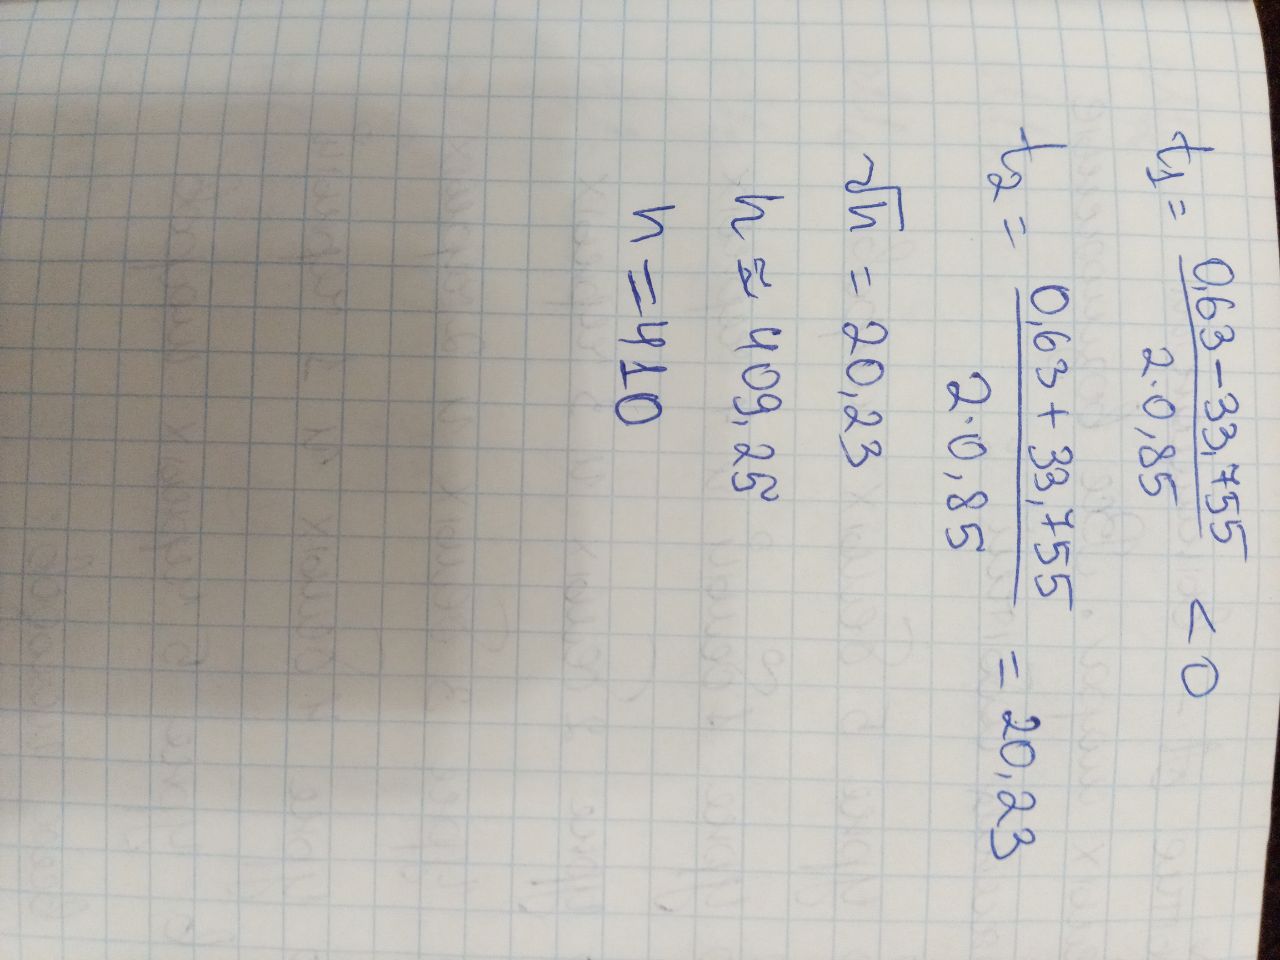 t₁ = (0,63 − 33,755) / (2·0,85) < 0
t₂ = (0,63 + 33,755) / (2·0,85) = 20,23
√n = 20,23
n ≈ 409,25
n = 410